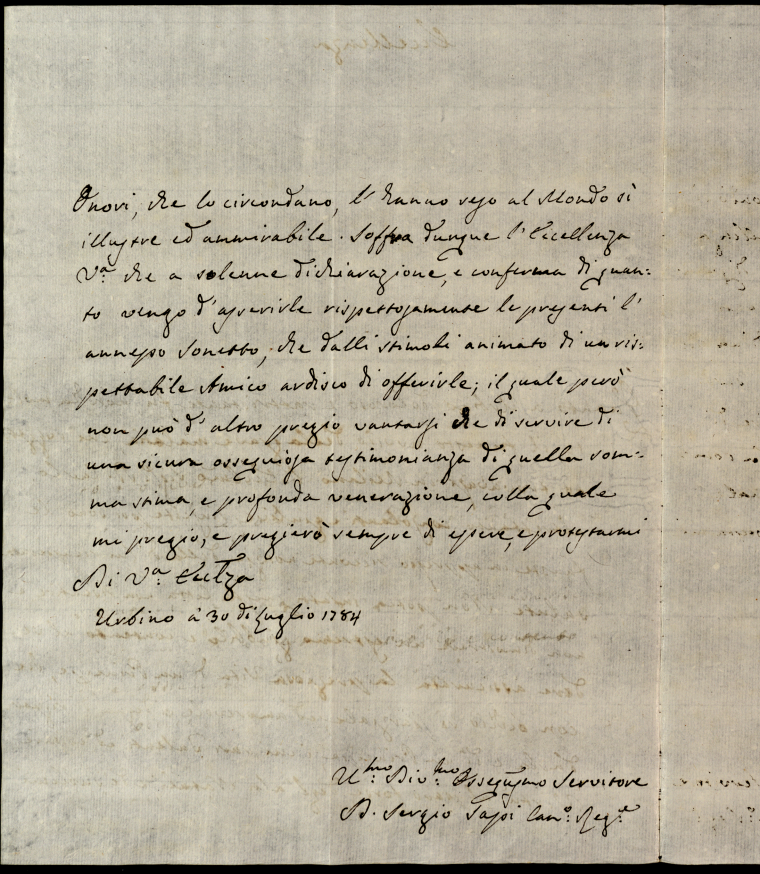 Onori, che lo circondano, l'hanno reso al Mondo sì
illustre ed ammirabile. Soffra dunque l'Eccellenza
Vª che a solenne dichiarazione, e conferma di quan:
to vengo d'asserirle rispettosamente le presenti l'
annesso Sonetto, che dalli stimoli animato di un ris:
pettabile Amico ardisco di offerirle; il quale però
non può d'altro pregio vantarsi che di servire di
una sicura ossequiosa testimonianza di quella som:
ma stima, e profonda venerazione, colla quale
mi pregio, e pregierò sempre di essere, e protestarmi
Di Vª Ecclza
Urbino a 30 di Luglio 1784
Umo: Divmo: Ossequmo Servitore
D. Sergio Canº: Regº